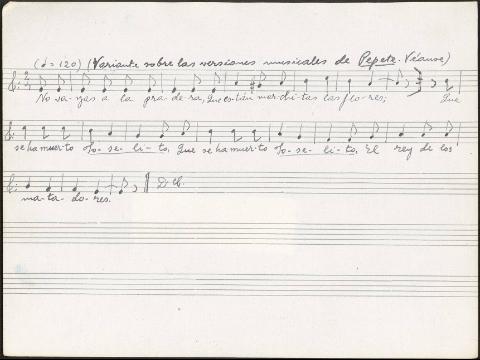 (♩=120) (Variante sobre las versiones musicales de Pepete. Véanse)
No va-yas a la pra-de-ra, Que están mar-chi-tas las flo-res; Que
se ha muer-to Jo-se-li-to, Que se ha muer-to Jo-se-li-to, El rey de los
ma-ta-do-res. D.C.